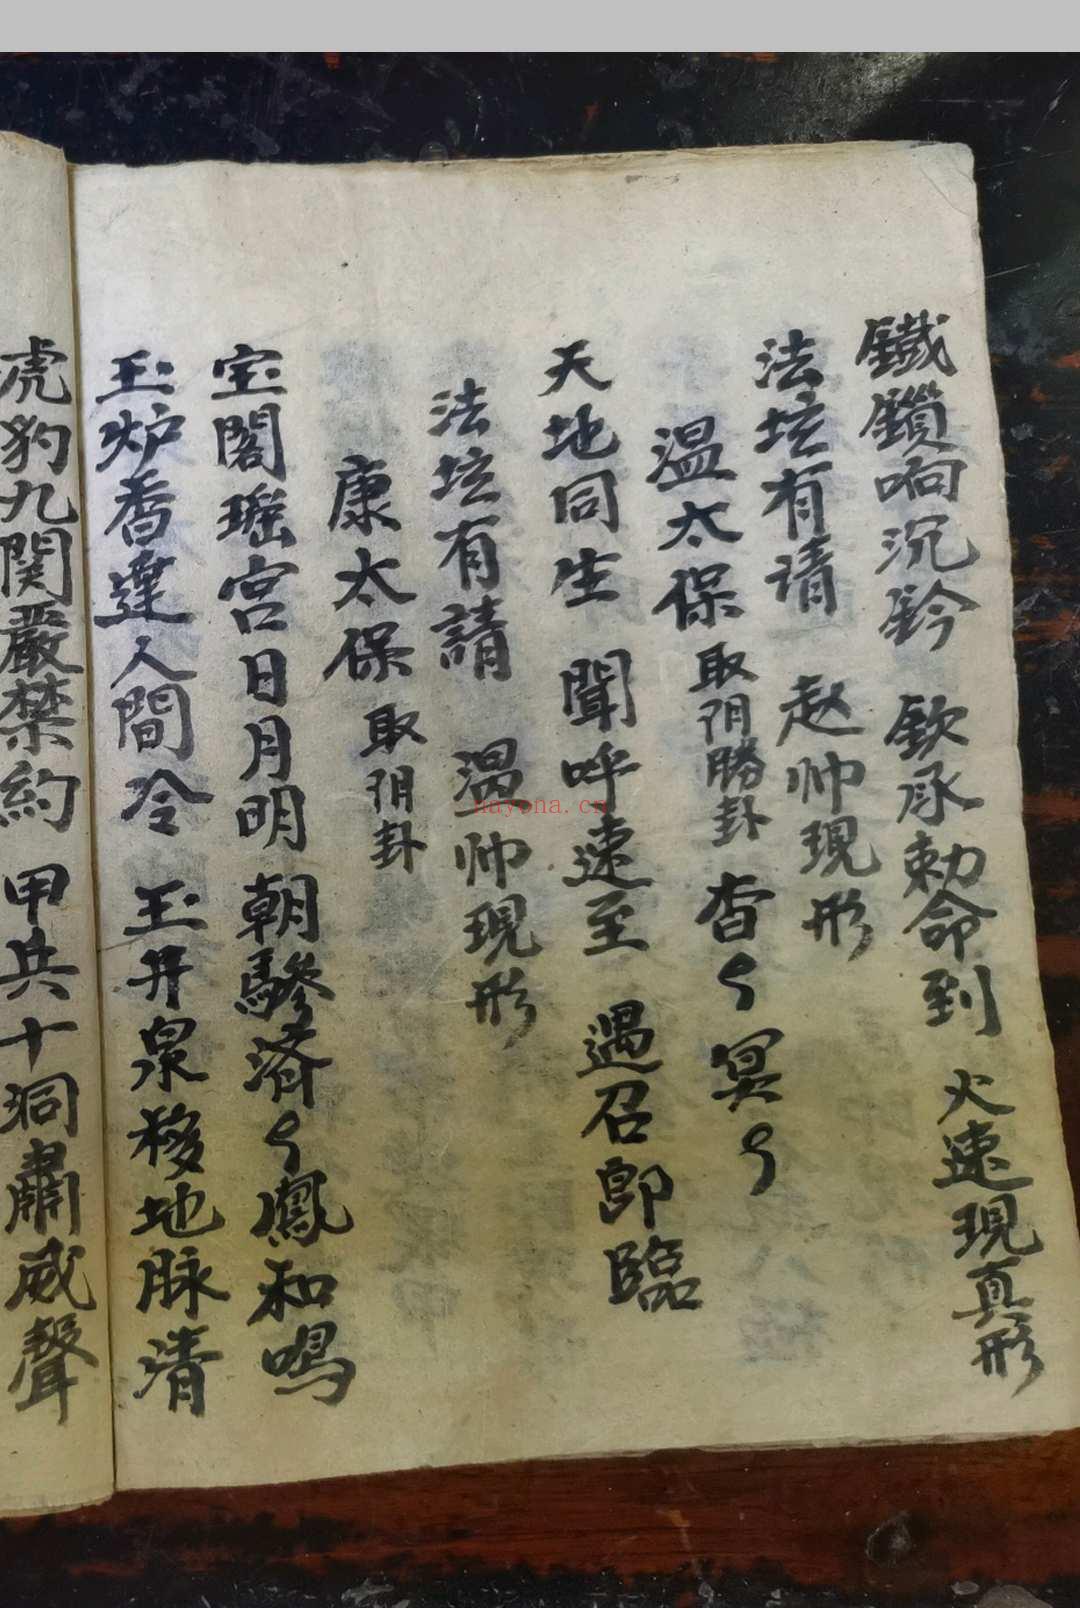 鐵鎖响沉鈴 欽承勅命到 火速現真形
法坛有请 赵帅現形
温太保取阴勝卦 杳々冥々
天地同生 聞呼速至 遇召郎臨
法坛有請 温帅現形
康太保 取阴卦
宝閣瑶宮日月明 朝驂済々鳳和鳴
玉炉香達人間冷 玉井泉移地脉清
虎豹九関嚴禁約 甲兵十洞肅威聲
nayona.cn